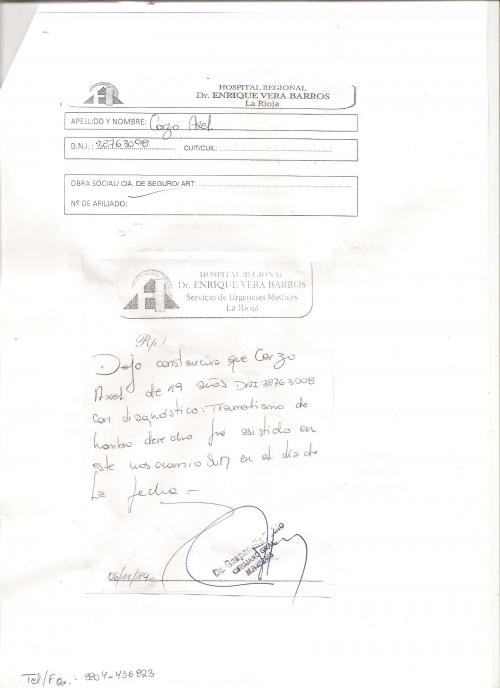 HOSPITAL REGIONAL
Dr. ENRIQUE VERA BARROS
La Rioja
APELLIDO Y NOMBRE: Corzo Axel
D.N.I.: 38763098 CUIT/CUIL:
OBRA SOCIAL/ CIA. DE SEGURO/ ART:
Nº DE AFILIADO:
HOSPITAL REGIONAL
Dr. ENRIQUE VERA BARROS
Servicio de Urgencias Medicas
La Rioja
Rp./
Dejo constancia que Corzo
Axel de 19 años DNI 38763098
con diagnóstico: Traumatismo de
hombro derecho fué asistido en
este nosocomio en el día de
la fecha.-
Dr.
CIRUJANO
06/11/14
Tel/Fax.: